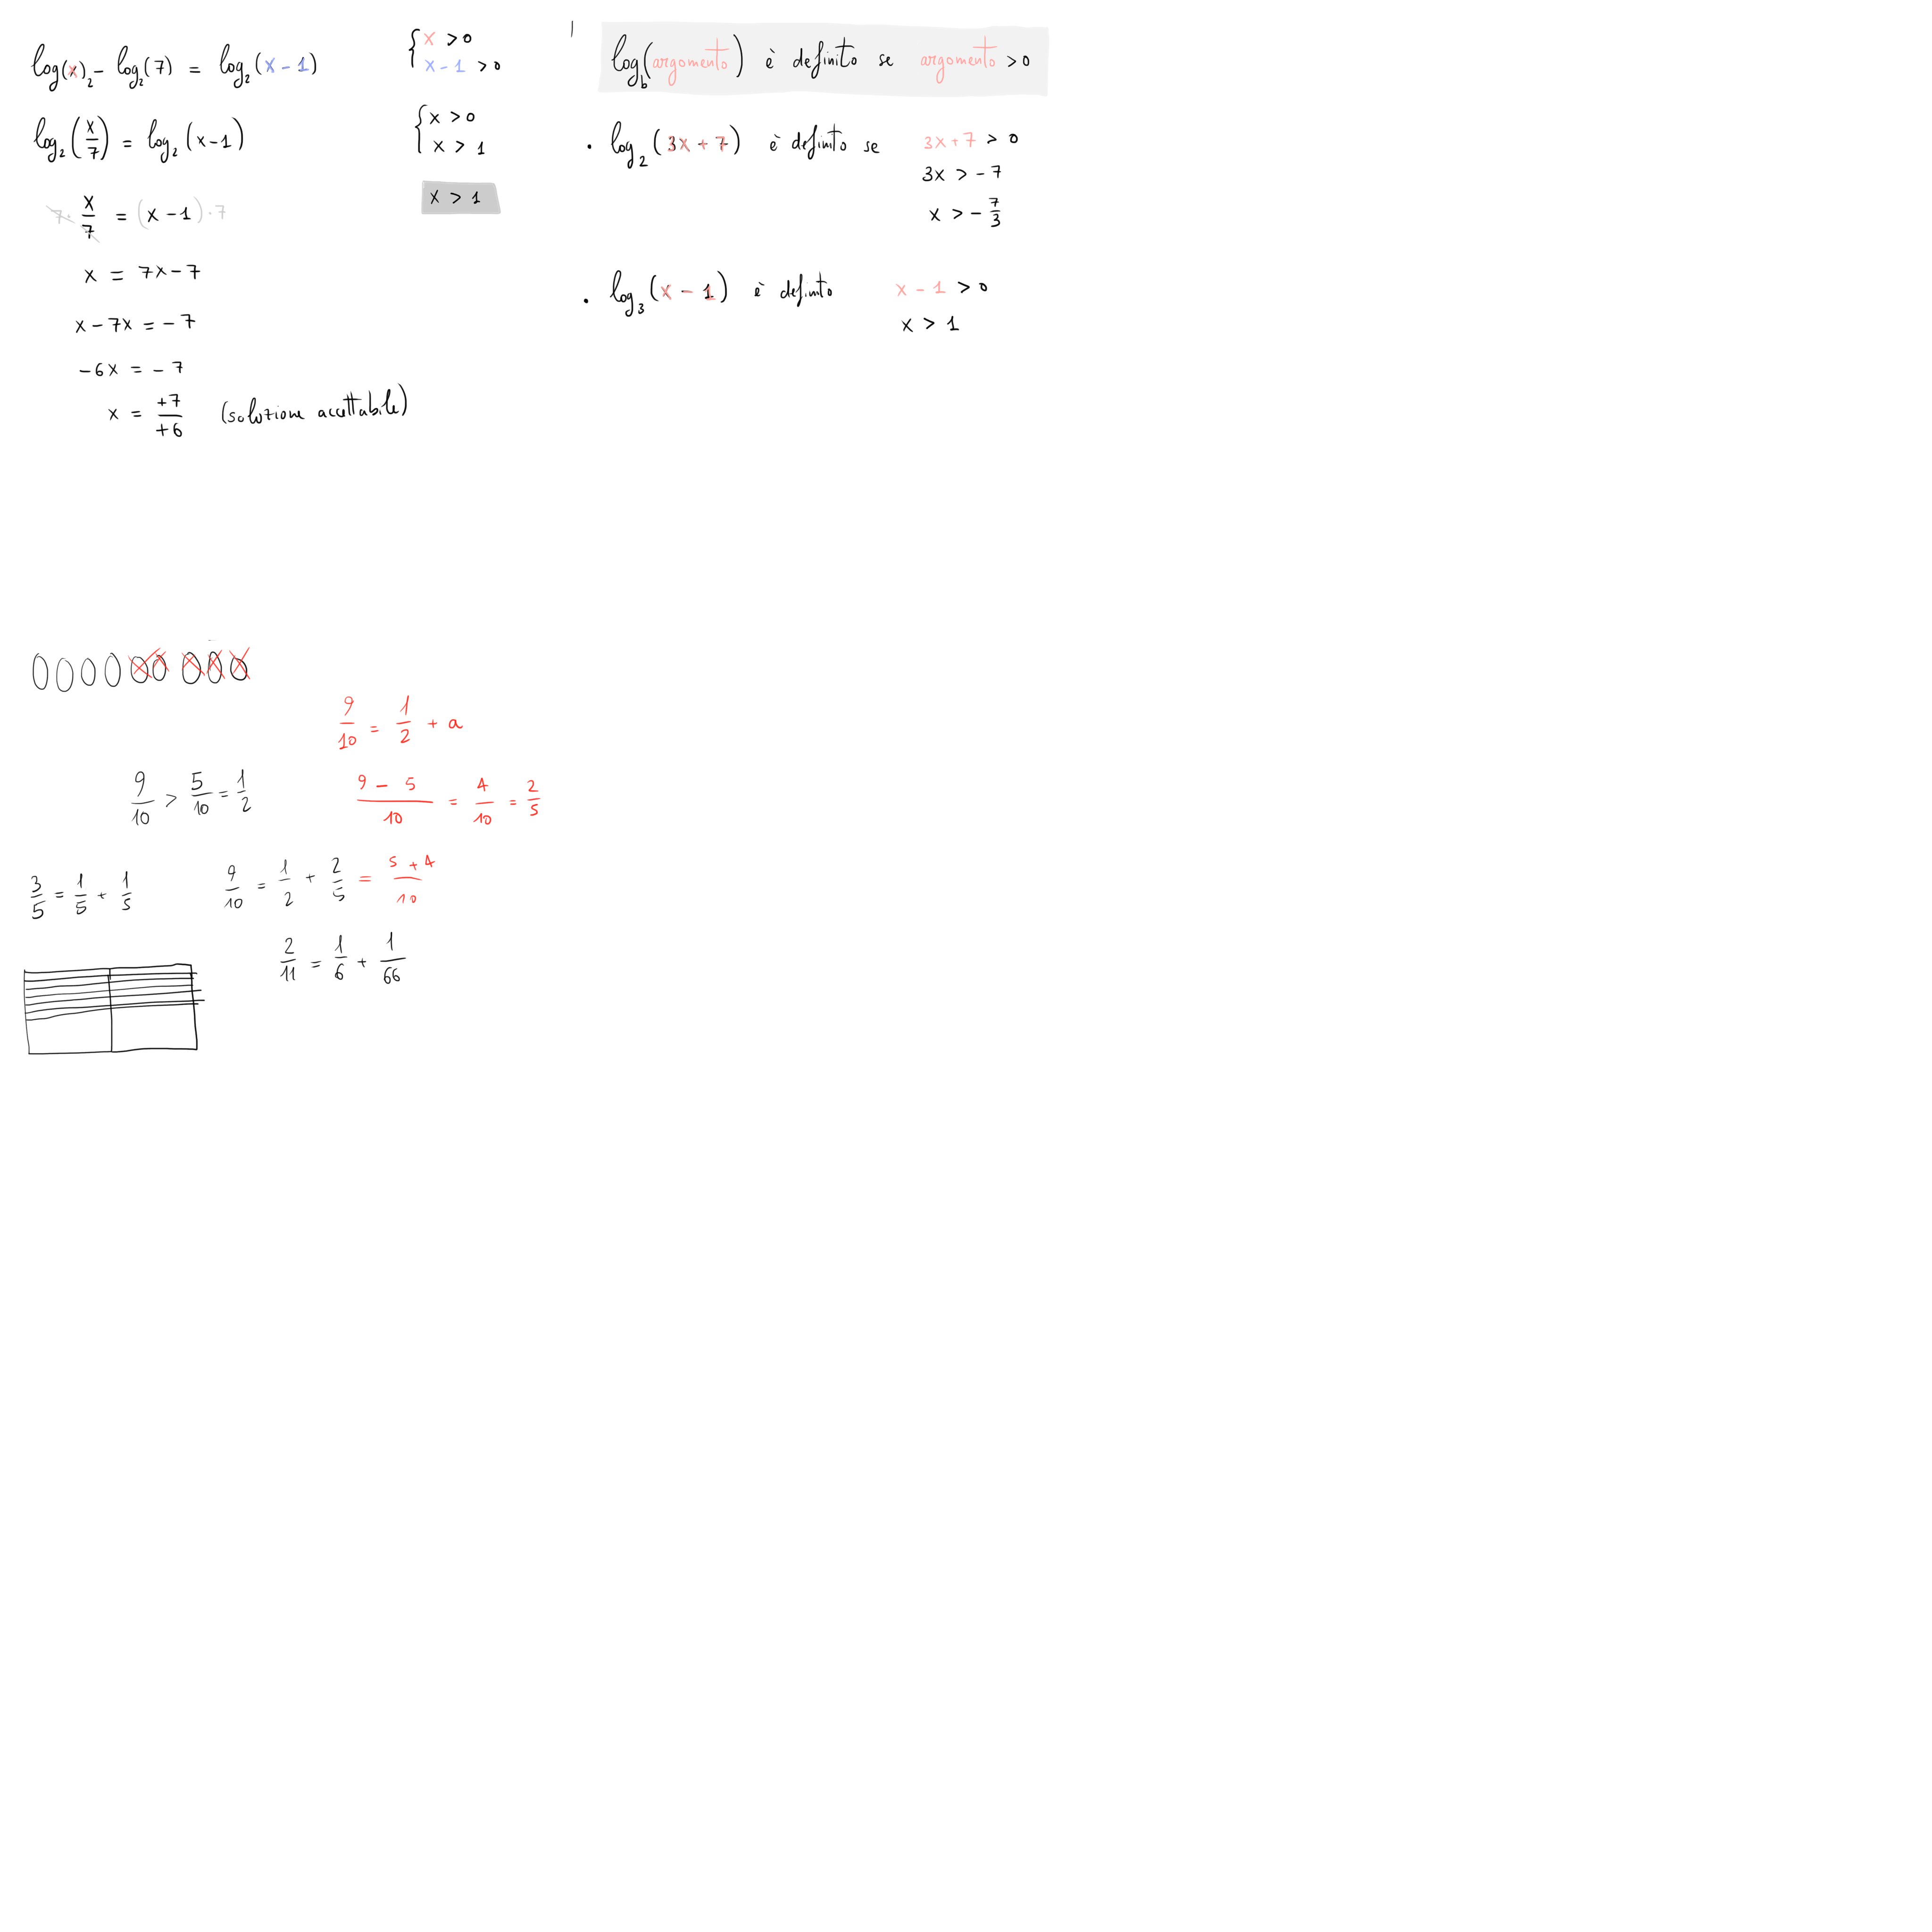 log(x)₂ - log₂(7) = log₂(x - 1)
{ x > 0
x - 1 > 0
log₂(x/7) = log₂(x-1)
{ x > 0
x > 1
x > 1
7 · x/7 = (x - 1) · 7
x = 7x - 7
x - 7x = - 7
-6x = - 7
x = +7/+6 (soluzione accettabile)
log_b(argomento) è definito se argomento > 0
• log₂(3x + 7) è definito se 3x + 7 > 0
3x > - 7
x > - 7/3
• log₃(x - 1) è definito x - 1 > 0
x > 1
9/10 = 1/2 + a
9/10 > 5/10 = 1/2
9 - 5/10 = 4/10 = 2/5
3/5 = 1/5 + 1/5
9/10 = 1/2 + 2/5 = 5 + 4/10
2/11 = 1/6 + 1/66